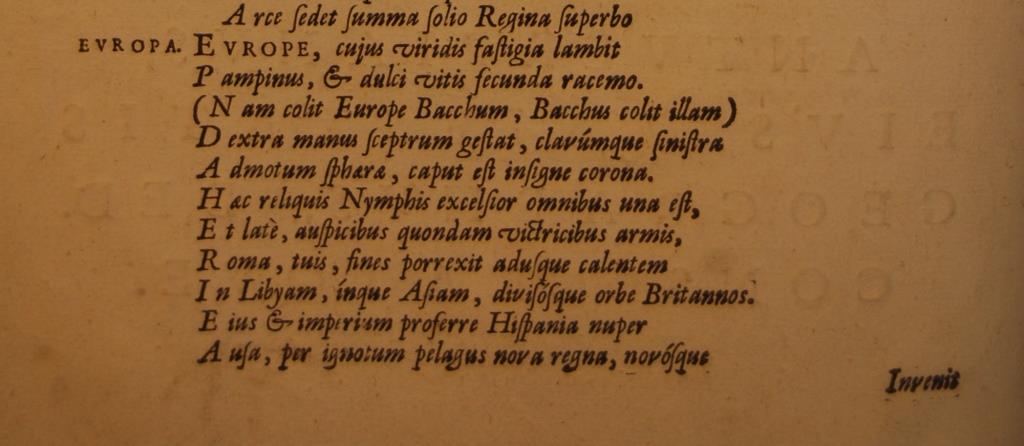 Arce ſedet ſumma ſolio Regina ſuperbo
EVROPA. EVROPE, cujus viridis faſtigia lambit
Pampinus, & dulci vitis fecunda racemo.
(Nam colit Europe Bacchum, Bacchus colit illam)
Dextra manus ſceptrum geſtat, clavúmque ſiniſtra
Admotum ſphæræ, caput eſt inſigne corona.
Hæc reliquis Nymphis excelſior omnibus una eſt,
Et latè, auſpicibus quondam victricibus armis,
Roma, tuis, fines porrexit aduſque calentem
In Libyam, ínque Aſiam, diviſóſque orbe Britannos.
Eius & imperium proferre Hiſpania nuper
Auſa, per ignotum pelagus nova regna, novóſque
Invenit